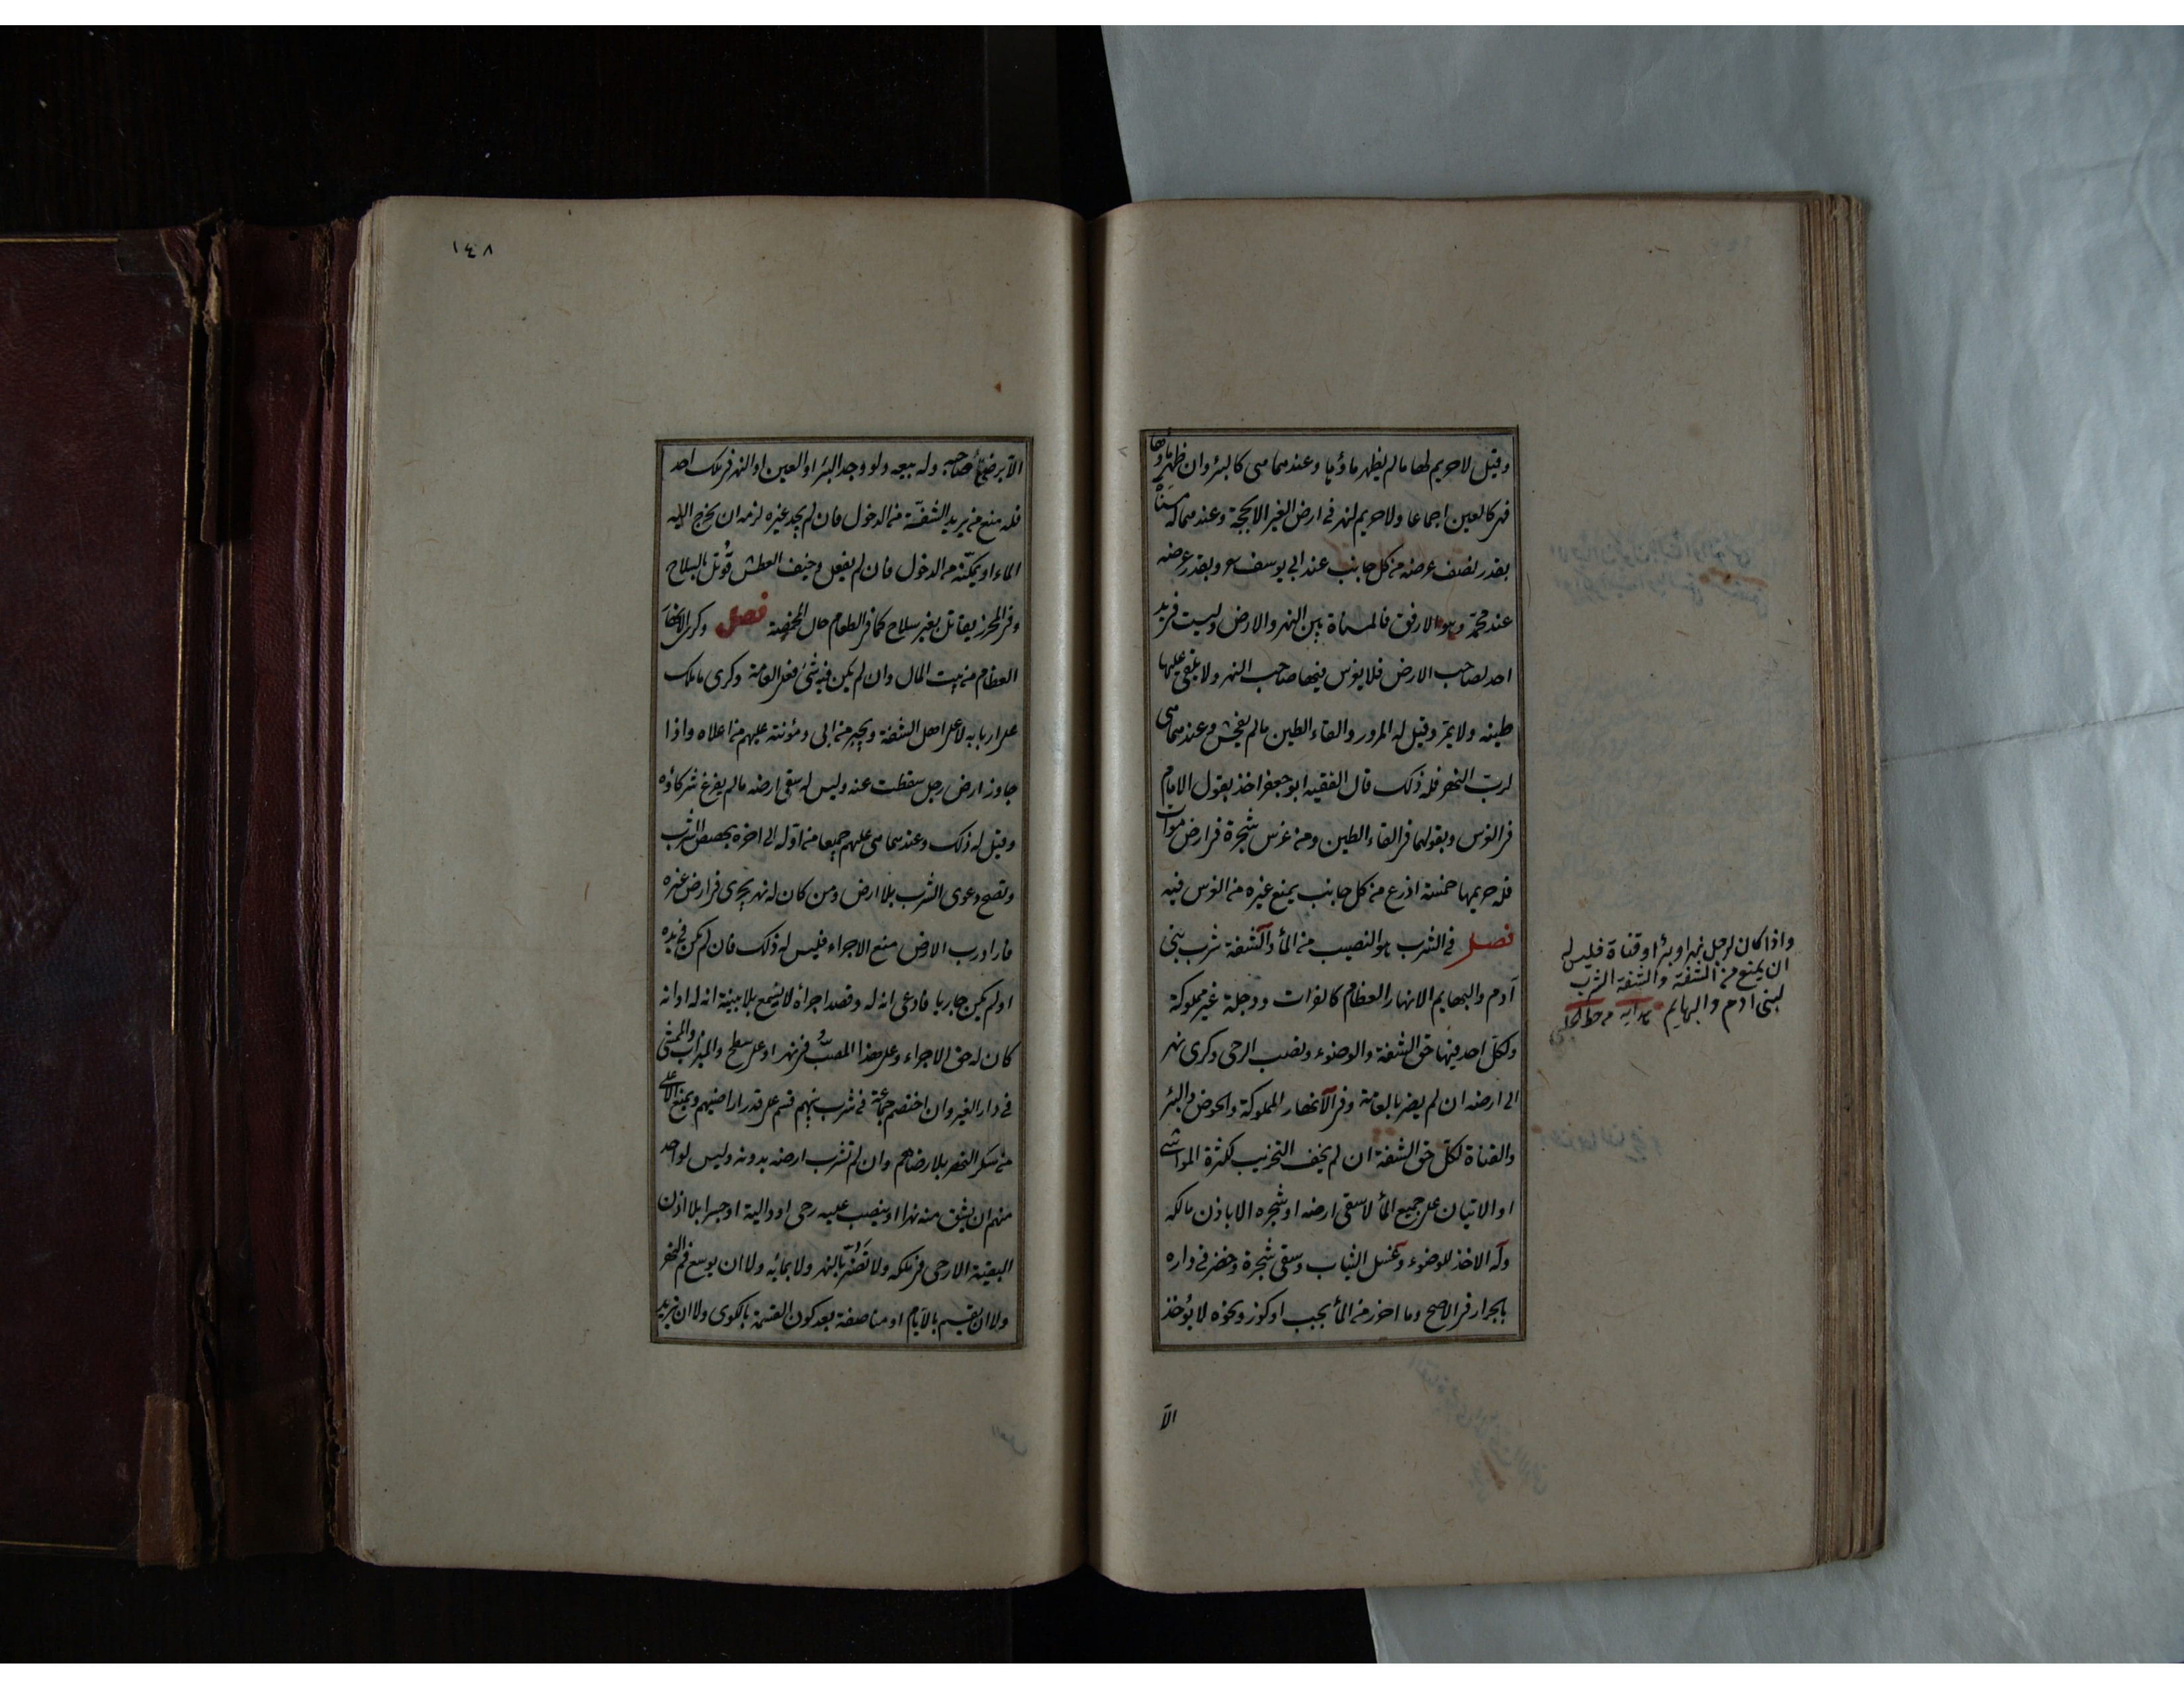 وقيل لا حريم لها ما لم يظهر ماؤها وعندهما هي كالبئر وان ظهر ماؤها
فهي كالعين اجماعا ولا حريم لنهر في ارض الغير الا بحجة وعندهما له مسناة
بقدر نصف عرضه من كل جانب عند ابي يوسف وبقدر عرضه
عند محمد وهو الارفق فالمسناة بين النهر والارض وليست في يد
احد لصاحب الارض فلا يغرس فيها صاحب النهر ولا يلقي عليها
طينه ولا يمر وقيل له المرور والقاء الطين ما لم يفحش وعندهما هي
لرب النهر فله ذلك قال الفقيه ابو جعفر اخذ بقول الامام
في الغرس وبقولهما في القاء الطين ومن غرس شجرة في ارض موات
فله حريمها خمسة اذرع من كل جانب يمنع غيره من الغرس فيه
فصل في الشرب هو النصيب من الماء والشفة شرب بني
آدم والبهايم الانهار العظام كالفرات ودجلة غير مملوكة
ولكل احد فيها حق الشفة والوضوء ونصب الرحى وكري نهر
الى ارضه ان لم يضر بالعامة وفي الانهار المملوكة والحوض والبئر
والقناة لكل حق الشفة ان لم يخف التخريب لكثرة المواشي
او الاتيان على جميع الماء لا سقي ارضه او شجره الا باذن مالكه
وله الاخذ للوضوء وغسل الثياب وسقي شجرة وخضر في داره
بالجرار في الاصح وما احرز من الماء بحب او كوز ونحوه لا يؤخذ
الا
واذا كان لرجل نهر او بئر او قناة فليس له
ان يمنع من الشفة والشفة الشرب
لبني ادم والبهايم هدايه من خط الحلبي
١٤٨
الا برضاء صاحبه وله بيعه ولو وجد البئر او العين او النهر في ملك احد
فله منع من يريد الشفة من الدخول فان لم يجد غيره لزمه ان يخرج اليه
الماء او يمكنه من الدخول فان لم يفعل وخيف العطش قوتل بالسلاح
وفي المحرز يقاتل بغير سلاح كما في الطعام حال المخمصة فصل وكري الانهار
العظام من بيت المال وان لم يكن فيه شيء فعلى العامة وكري ما ملك
على اربابه لا على اهل الشفة ويجبر من ابى ومؤنته عليهم من اعلاه واذا
جاوز ارض رجل سقطت عنه وليس له سقي ارضه ما لم يفرغ شركاؤه
وقيل له ذلك وعندهما هي عليهم جميعا من اوله الى اخره بحصص الشرب
وتصح دعوى الشرب بلا ارض ومن كان له نهر يجري في ارض غيره
فاراد رب الارض منع الاجراء فليس له ذلك فان لم يكن في يده
او لم يكن جاريا فادعى انه له وقصد اجراءه لا يسمع بلا بينة انه له او انه
كان له حق الاجراء وعلى هذا المصب في نهر او على سطح والميزاب والممشى
في دار الغير وان اختصم جماعة في شرب بينهم قسم على قدر اراضيهم ويمنع الاعلى
من سكر النهر بلا رضاهم وان لم تشرب ارضه بدونه وليس لواحد
منهم ان يشق منه نهرا او ينصب عليه رحى او دالية او جسرا بلا اذن
البقية الا رحى في ملكه ولا تضر بالنهر ولا بمائه ولا ان يوسع فم النهر
ولا ان يقسم بالايام او مناصفة بعد كون القسمة بالكوى ولا ان يزيد